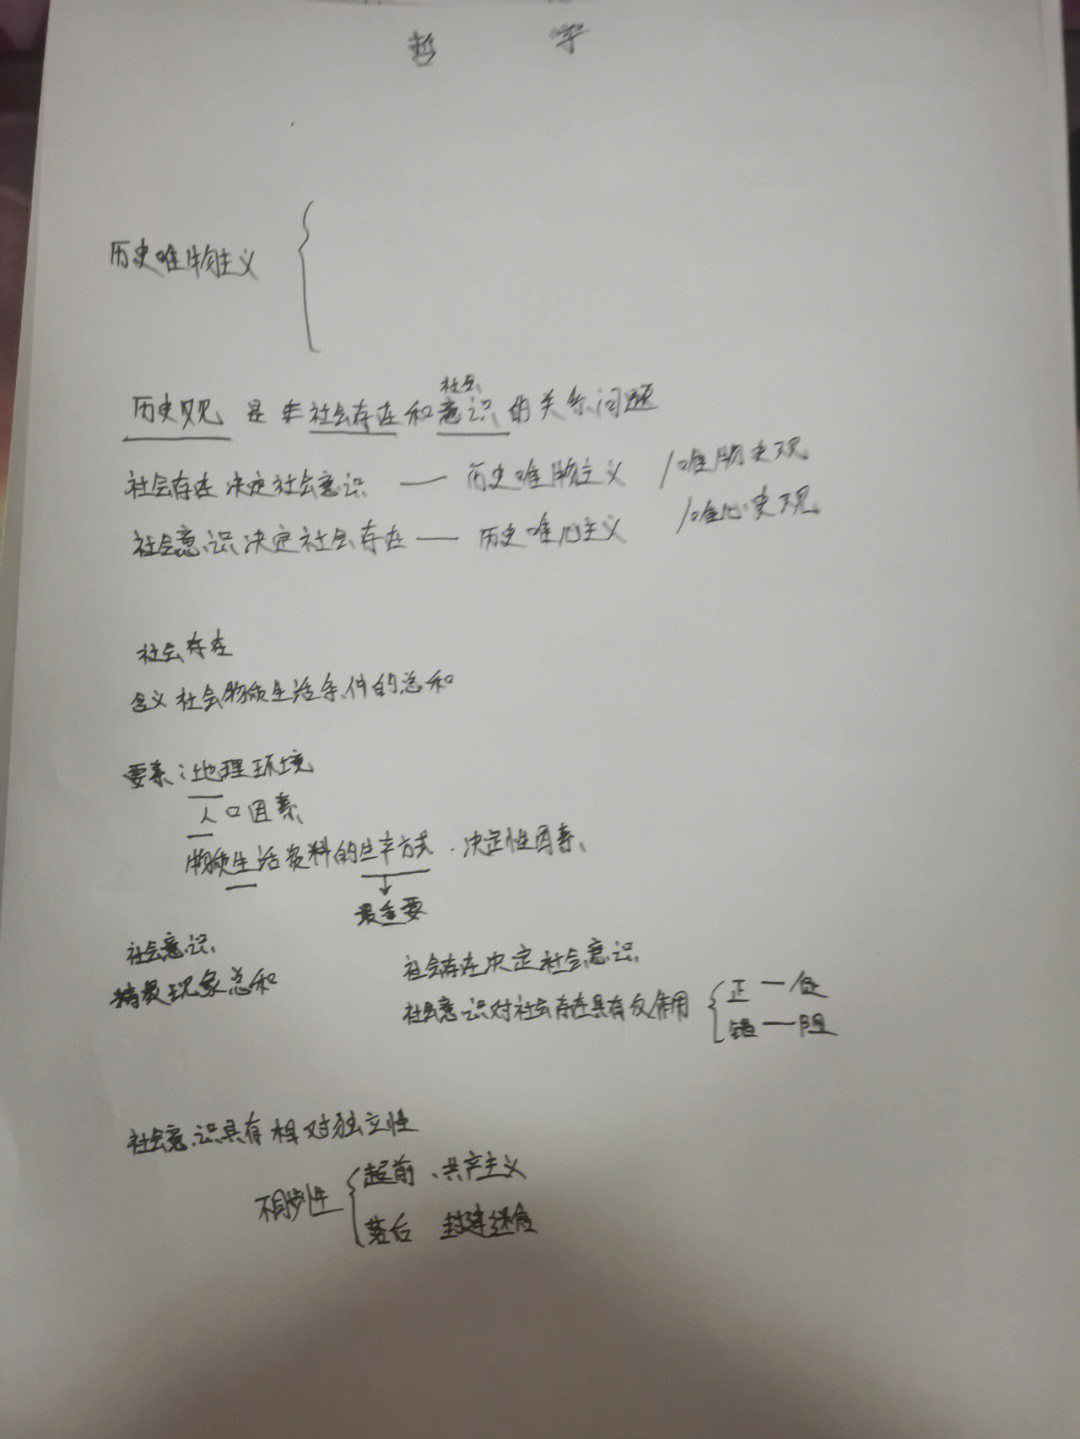 哲 学
历史唯物主义
历史观 是 社会存在和意识的关系问题
社会
社会存在决定社会意识 — 历史唯物主义 /唯物史观
社会意识决定社会存在 — 历史唯心主义 /唯心史观
社会存在
含义 社会物质生活条件的总和
要素：地理环境
人口因素
物质生活资料的生产方式 . 决定性因素
最重要
社会意识
精神现象总和
社会存在决定社会意识
社会意识对社会存在具有反作用
正 — 促
错 — 阻
社会意识具有相对独立性
不同步性
超前 、共产主义
落后 封建迷信